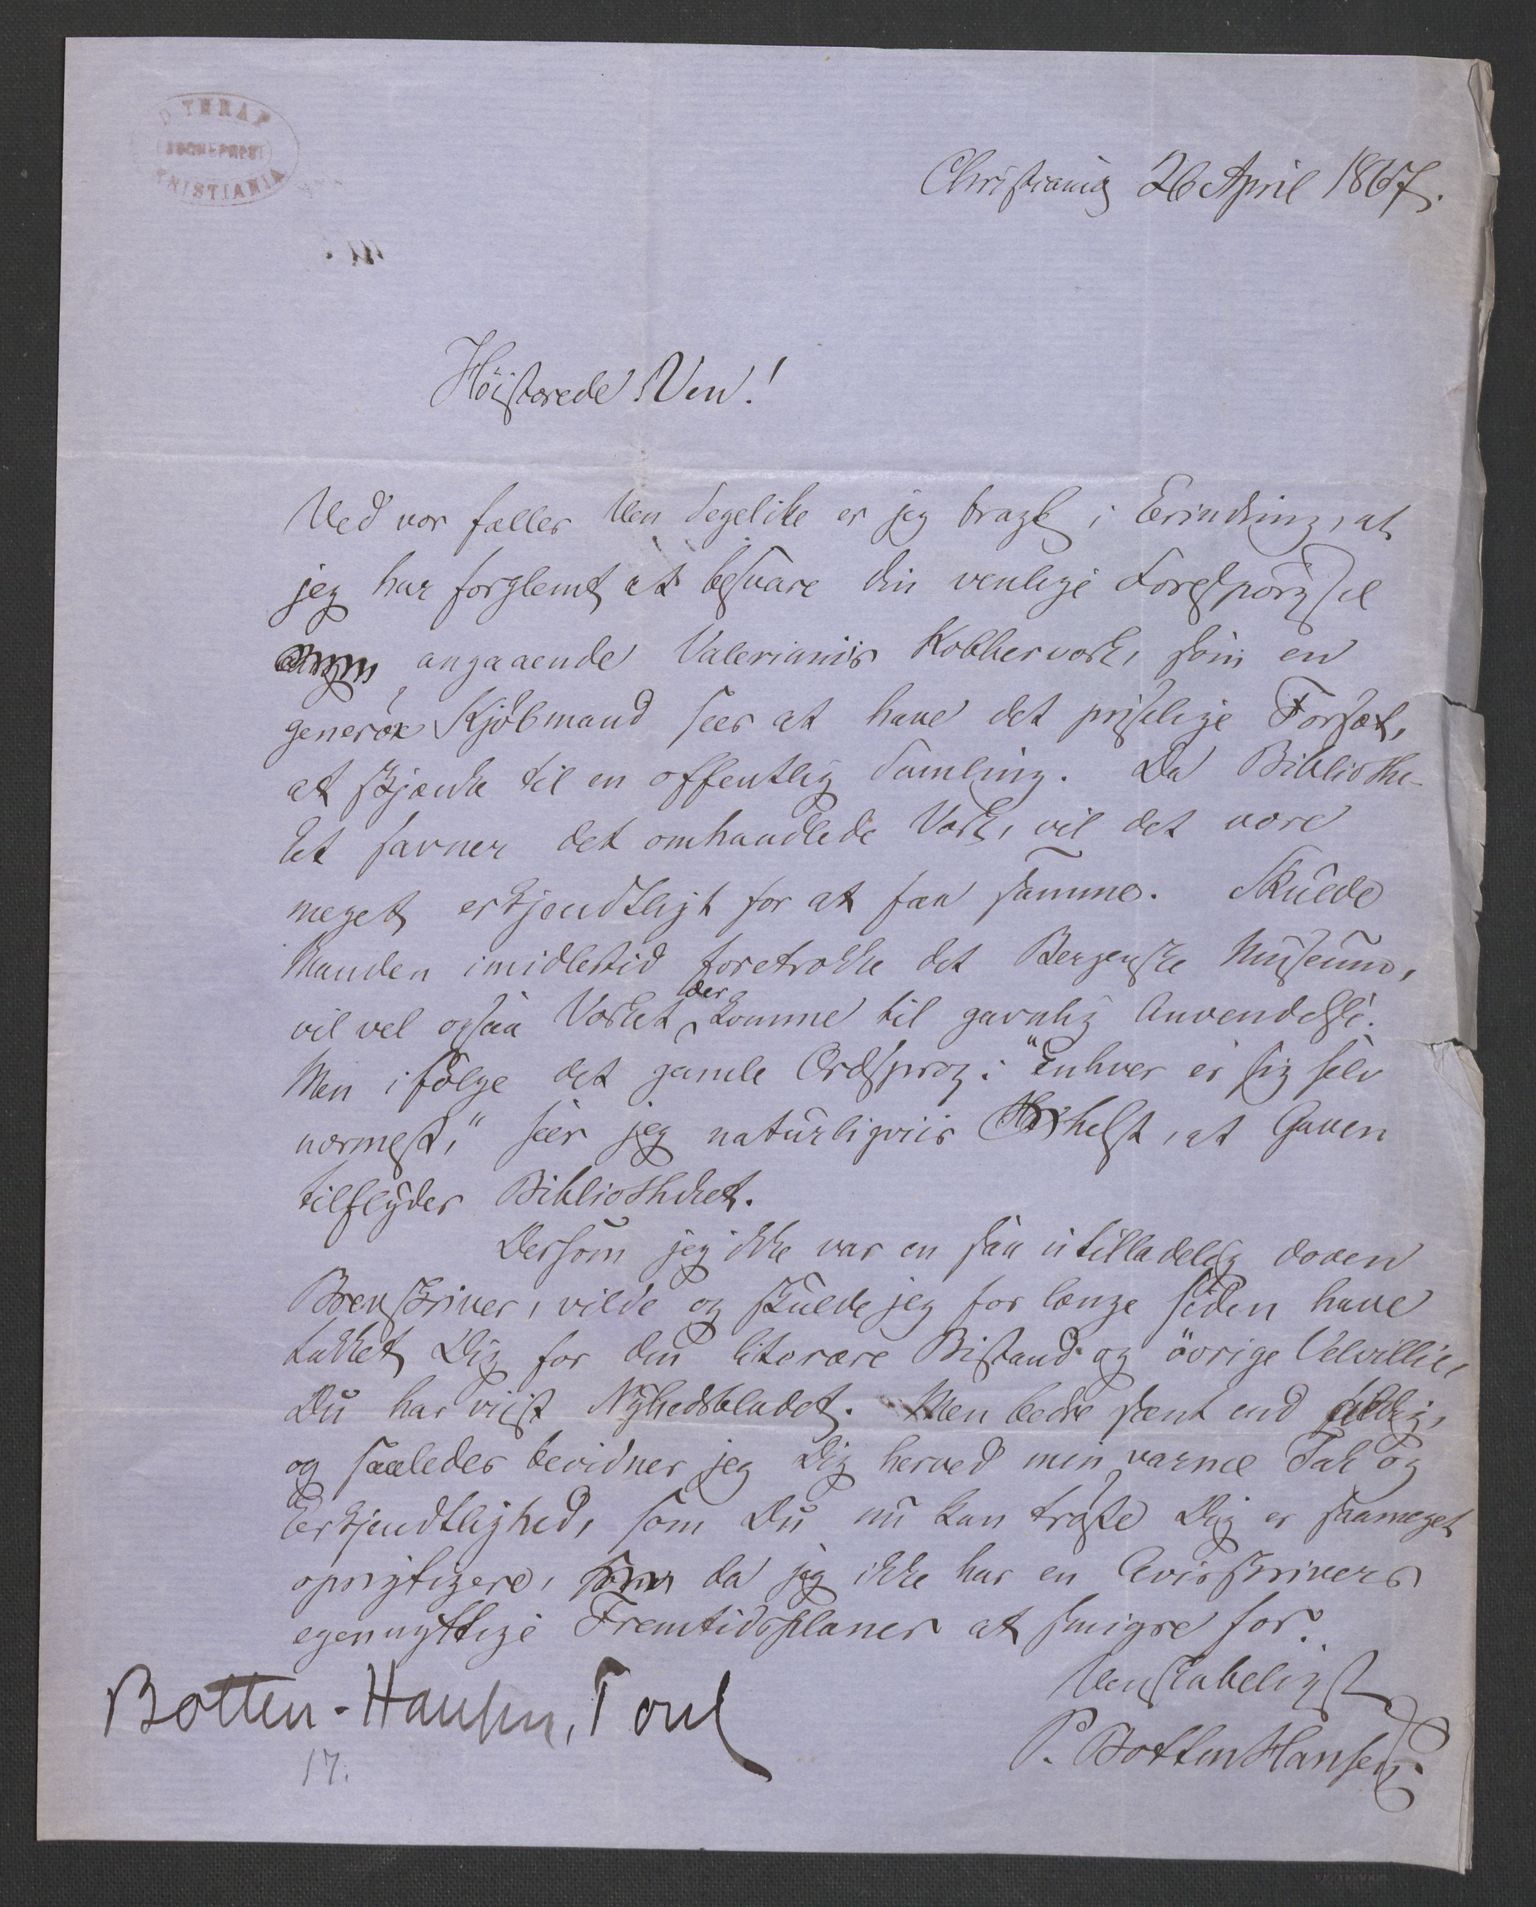 D THRAP
CHRISTIANIA
Christiania 26 April 1867.
Höistærede Ven!
Ved vor fælles Ven Segelcke er jeg bragt i Erindring, at
jeg har forglemt at besvare din venlige Forespörgsel
angaaende Valerianis Kobberværk, som en
generöse Kjöbmand sees at have det priselige Forsæt,
at skjænke til en offentlig Samling. Da Bibliothe-
ket savner det omhandlede Værk, vil det være
meget erkjendtligt for at faa samme. Skulde
Manden imidlertid foretrække det Bergenske Museum,
vil vel ogsaa Værket der komme til gavnlig Anvendelse.
Men ifölge det gamle Ordsprog: "Enhver er sig selv
nærmest," seer jeg naturligviis helst, at Gaven
tilflyder Bibliotheket.
Dersom jeg ikke var en saa utilladelig doven
Brevskriver, vilde og skulde jeg for længe siden have
takket Dig for den literære Bistand og övrige Velvillie,
Du har viist Nyhedsbladet. Men bedre seent end aldrig,
og saaledes bevidner jeg Dig herved min varme Tak og
Erkjendtlighed, som Du nu kan tröste Dig er saameget
oprigtigere, da jeg ikke har en Avisskrivers
egennyttige Fremtidsplaner at smigre for.
Venskabeligst
P. Botten Hansen.
Botten-Hansen, Poul
17.